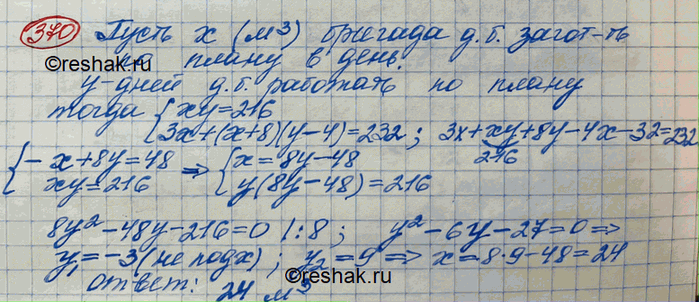 370 Пусть x (м³) бригада д.б. загот-ть
по плану в день.
©reshak.ru
y-дней д.б. работать по плану
тогда { xy=216
3x+(x+8)(y-4)=232; 3x+xy+8y-4x-32=232
216
{ -x+8y=48 => { x=8y-48
xy=216 y(8y-48)=216
8y²-48y-216=0 |:8; y²-6y-27=0 =>
y₁=-3 (не подх); y₂=9 => x=8·9-48=24
ответ: 24 м³
©reshak.ru